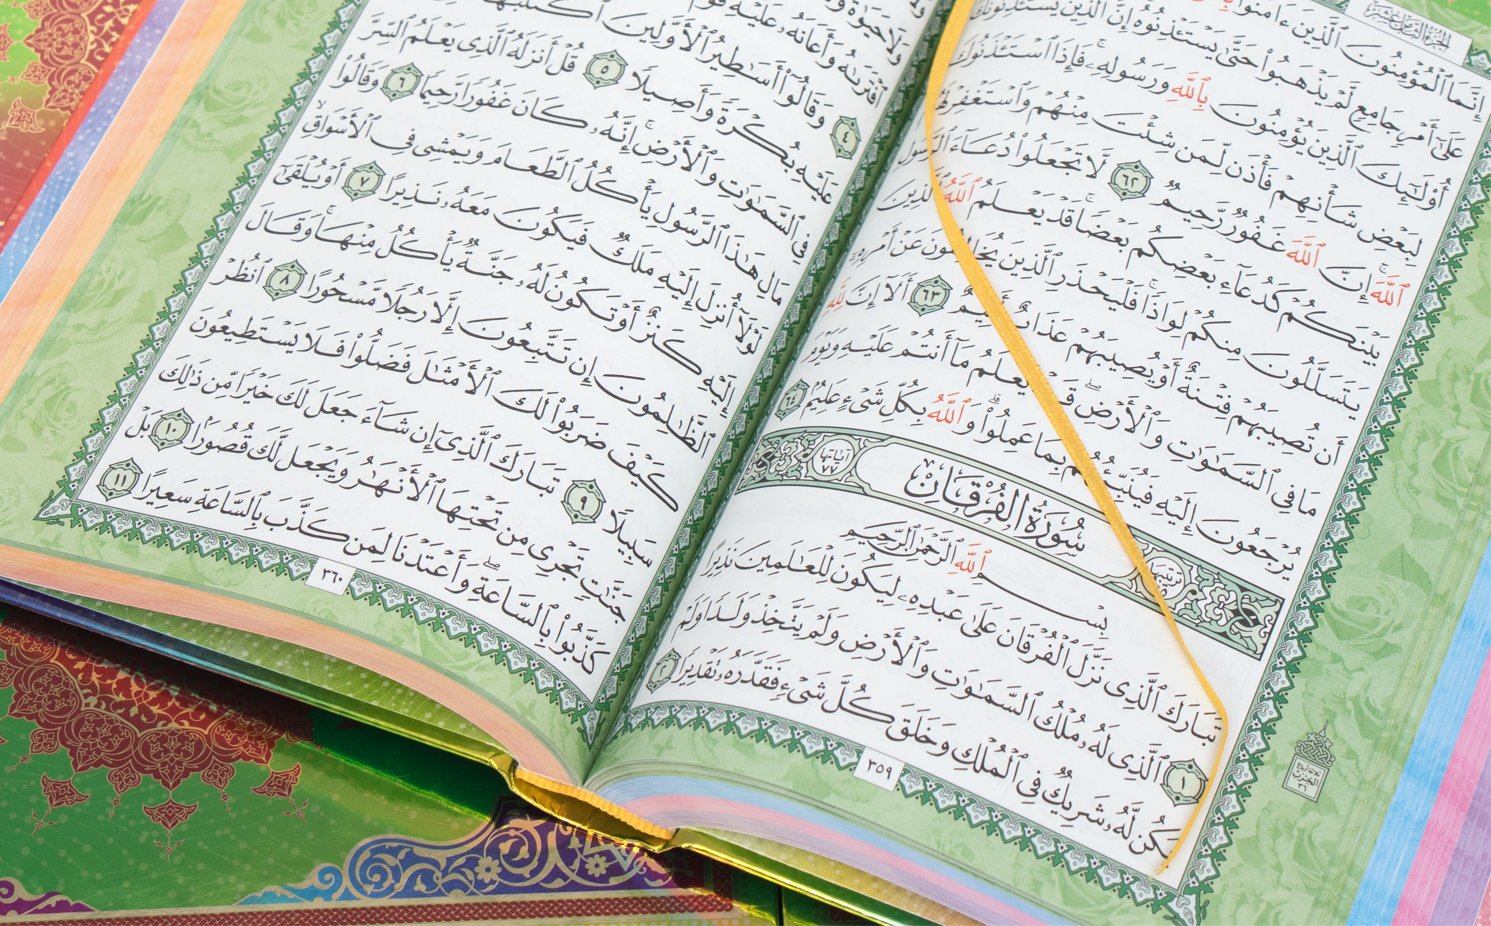 الجزء الثامن عشر
إِنَّمَا ٱلْمُؤْمِنُونَ ٱلَّذِينَ ءَامَنُوا۟
عَلَىٰٓ أَمْرٍ جَامِعٍ لَّمْ يَذْهَبُوا۟ حَتَّىٰ يَسْتَـْٔذِنُوهُ إِنَّ ٱلَّذِينَ يَسْتَـْٔذِنُونَكَ
أُو۟لَٰٓئِكَ ٱلَّذِينَ يُؤْمِنُونَ بِٱللَّهِ وَرَسُولِهِۦ ۚ فَإِذَا ٱسْتَـْٔذَنُوكَ
لِبَعْضِ شَأْنِهِمْ فَأْذَن لِّمَن شِئْتَ مِنْهُمْ وَٱسْتَغْفِرْ
ٱللَّهَ ۚ إِنَّ ٱللَّهَ غَفُورٌ رَّحِيمٌ ٦٢ لَّا تَجْعَلُوا۟ دُعَآءَ ٱلرَّسُولِ
بَيْنَكُمْ كَدُعَآءِ بَعْضِكُم بَعْضًا ۚ قَدْ يَعْلَمُ ٱللَّهُ ٱلَّذِينَ
يَتَسَلَّلُونَ مِنكُمْ لِوَاذًا ۚ فَلْيَحْذَرِ ٱلَّذِينَ يُخَالِفُونَ عَنْ أَمْرِهِۦٓ
أَن تُصِيبَهُمْ فِتْنَةٌ أَوْ يُصِيبَهُمْ عَذَابٌ أَلِيمٌ ٦٣ أَلَآ إِنَّ لِلَّهِ
مَا فِى ٱلسَّمَٰوَٰتِ وَٱلْأَرْضِ ۖ قَدْ يَعْلَمُ مَآ أَنتُمْ عَلَيْهِ وَيَوْمَ
يُرْجَعُونَ إِلَيْهِ فَيُنَبِّئُهُم بِمَا عَمِلُوا۟ ۗ وَٱللَّهُ بِكُلِّ شَىْءٍ عَلِيمٌ ٦٤
سُورَةُ الفُرْقَانِ آياتها ٧٧
بِسْمِ ٱللَّهِ ٱلرَّحْمَٰنِ ٱلرَّحِيمِ
تَبَارَكَ ٱلَّذِى نَزَّلَ ٱلْفُرْقَانَ عَلَىٰ عَبْدِهِۦ لِيَكُونَ لِلْعَٰلَمِينَ نَذِيرًا
١ ٱلَّذِى لَهُۥ مُلْكُ ٱلسَّمَٰوَٰتِ وَٱلْأَرْضِ وَلَمْ يَتَّخِذْ وَلَدًا وَلَمْ
يَكُن لَّهُۥ شَرِيكٌ فِى ٱلْمُلْكِ وَخَلَقَ كُلَّ شَىْءٍ فَقَدَّرَهُۥ تَقْدِيرًا ٢
٣٥٩
ثلاثة أرباع
الحزب
٣٦
وَلَا حَيَوٰةً
ٱفْتَرَىٰهُ وَأَعَانَهُۥ عَلَيْهِ قَوْمٌ
٤ وَقَالُوٓا۟ أَسَٰطِيرُ ٱلْأَوَّلِينَ ٱكْتَتَبَهَا
عَلَيْهِ بُكْرَةً وَأَصِيلًا ٥ قُلْ أَنزَلَهُ ٱلَّذِى يَعْلَمُ ٱلسِّرَّ
فِى ٱلسَّمَٰوَٰتِ وَٱلْأَرْضِ ۚ إِنَّهُۥ كَانَ غَفُورًا رَّحِيمًا ٦ وَقَالُوا۟
مَالِ هَٰذَا ٱلرَّسُولِ يَأْكُلُ ٱلطَّعَامَ وَيَمْشِى فِى ٱلْأَسْوَاقِ ۙ
لَوْلَآ أُنزِلَ إِلَيْهِ مَلَكٌ فَيَكُونَ مَعَهُۥ نَذِيرًا ٧ أَوْ يُلْقَىٰٓ
إِلَيْهِ كَنزٌ أَوْ تَكُونُ لَهُۥ جَنَّةٌ يَأْكُلُ مِنْهَا ۚ وَقَالَ
ٱلظَّٰلِمُونَ إِن تَتَّبِعُونَ إِلَّا رَجُلًا مَّسْحُورًا ٨ ٱنظُرْ
كَيْفَ ضَرَبُوا۟ لَكَ ٱلْأَمْثَٰلَ فَضَلُّوا۟ فَلَا يَسْتَطِيعُونَ
سَبِيلًا ٩ تَبَارَكَ ٱلَّذِىٓ إِن شَآءَ جَعَلَ لَكَ خَيْرًا مِّن ذَٰلِكَ
جَنَّٰتٍ تَجْرِى مِن تَحْتِهَا ٱلْأَنْهَٰرُ وَيَجْعَل لَّكَ قُصُورًا ١٠ بَلْ
كَذَّبُوا۟ بِٱلسَّاعَةِ ۖ وَأَعْتَدْنَا لِمَن كَذَّبَ بِٱلسَّاعَةِ سَعِيرًا ١١
٣٦٠